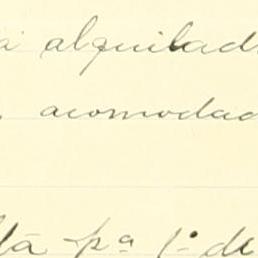 á alquilad
acomodad
tá pª 1º de